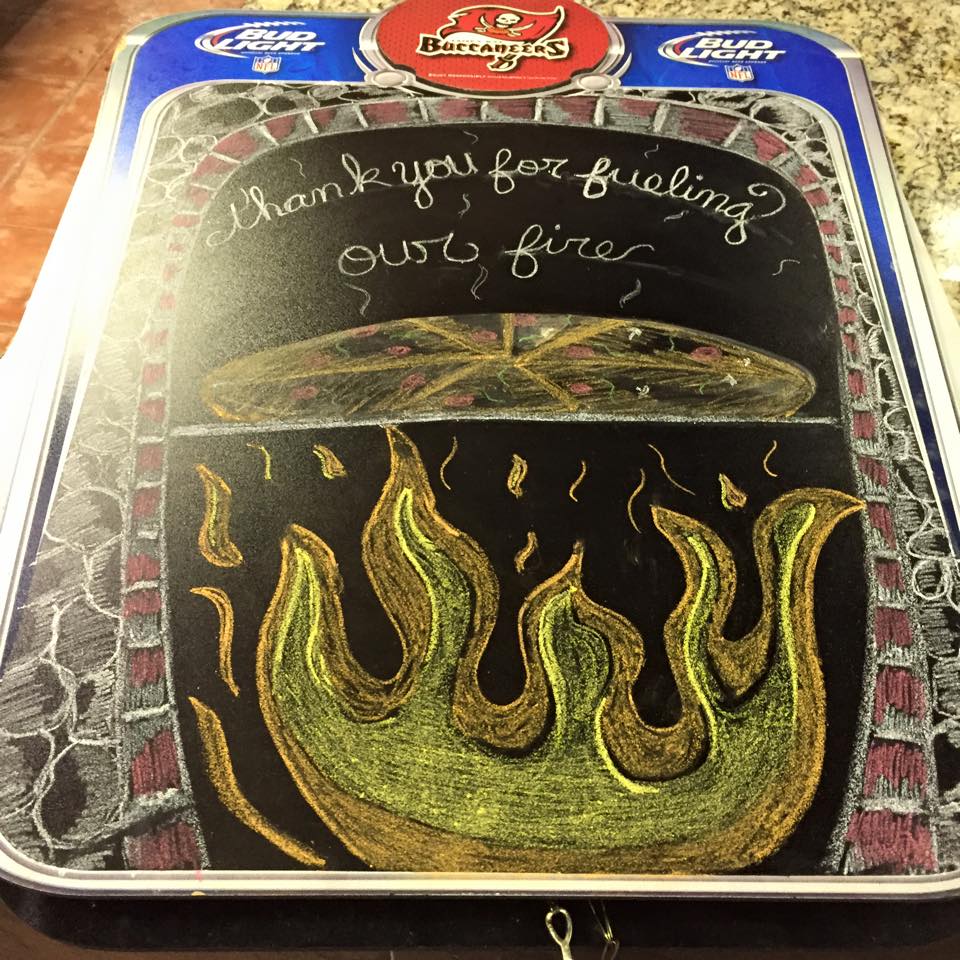 BUD LIGHT
NFL
BUCCANEERS
BUD LIGHT
NFL
thank you for fueling
our fire